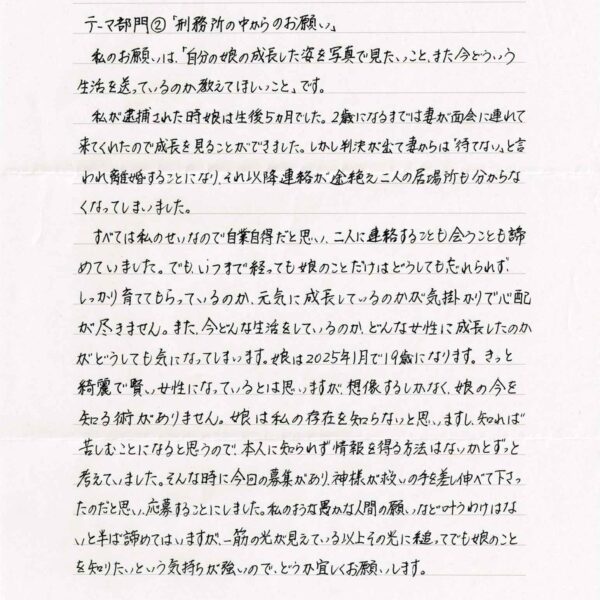 テーマ部門②「刑務所の中からのお願い」
私のお願いは、「自分の娘の成長した姿を写真で見たいこと、また今どういう
生活を送っているのか教えてほしいこと」です。
私が逮捕された時娘は生後5ヵ月でした。2歳になるまでは妻が面会に連れて
来てくれたので成長を見ることができました。しかし判決が出て妻からは「待てない」と言
われ離婚することになり、それ以降連絡が途絶え二人の居場所も分からな
くなってしまいました。
すべては私のせいなので自業自得だと思い、二人に連絡することも会うことも諦
めていました。でも、いつまで経っても娘のことだけはどうしても忘れられず、
しっかり育ててもらっているのか、元気に成長しているのかが気掛かりで心配
が尽きません。また、今どんな生活をしているのか、どんな女性に成長したのか
がどうしても気になってしまいます。娘は2025年1月で19歳になります。きっと
綺麗で賢い女性になっているとは思いますが、想像するしかなく、娘の今を
知る術がありません。娘は私の存在を知らないと思いますし、知れば
苦しむことになると思うので、本人に知られず情報を得る方法はないかとずっと
考えていました。そんな時に今回の募集があり、神様が救いの手を差し伸べて下さっ
たのだと思い、応募することにしました。私のような愚かな人間の願いなど叶うわけはな
いと半ば諦めてはいますが、一筋の光が見えている以上その光に縋ってでも娘のこと
を知りたいという気持ちが強いので、どうか宜しくお願いします。